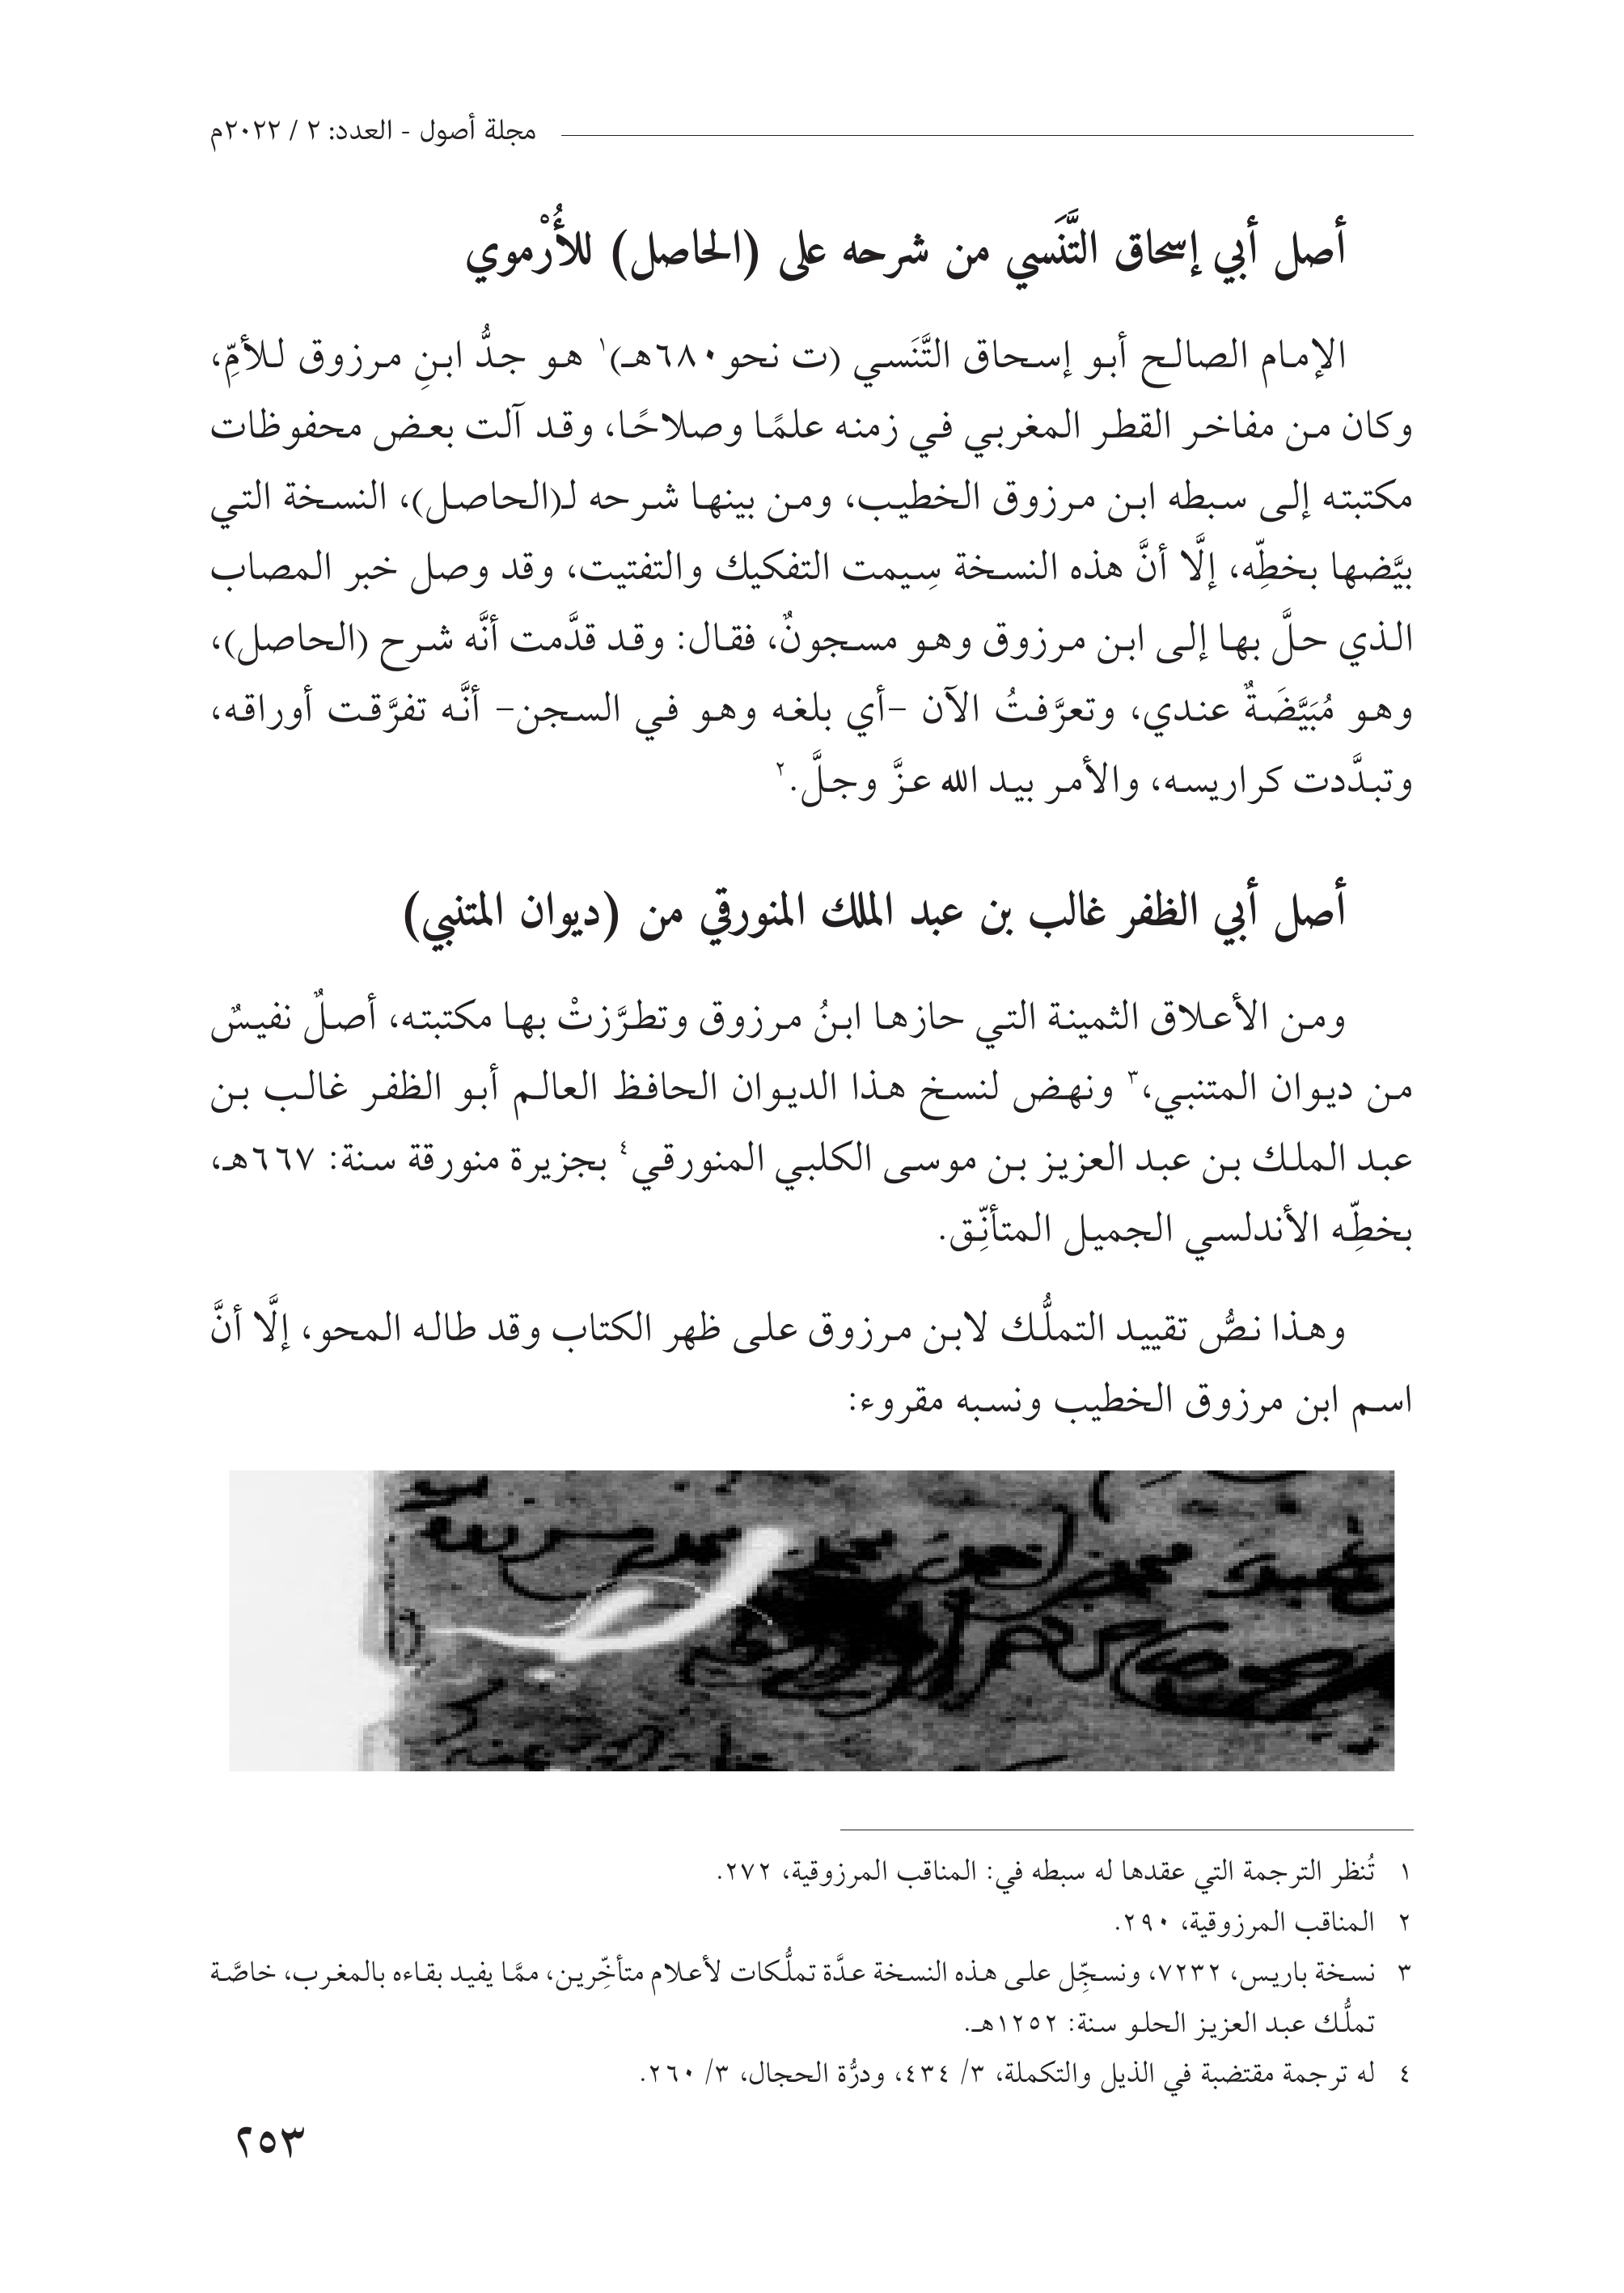 مجلة أصول - العدد: ٢ / ٢٠٢٢م
أصل أبي إسحاق التَّنَسي من شرحه على (الحاصل) للأُرْموي
الإمام الصالح أبو إسحاق التَّنَسي (ت نحو ٦٨٠هـ)١ هو جدُّ ابنِ مرزوق للأمِّ،
وكان من مفاخر القطر المغربي في زمنه علمًا وصلاحًا، وقد آلت بعض محفوظات
مكتبته إلى سبطه ابن مرزوق الخطيب، ومن بينها شرحه لـ(الحاصل)، النسخة التي
بيَّضها بخطِّه، إلَّا أنَّ هذه النسخة سِيمت التفكيك والتفتيت، وقد وصل خبر المصاب
الذي حلَّ بها إلى ابن مرزوق وهو مسجونٌ، فقال: وقد قدَّمت أنَّه شرح (الحاصل)،
وهو مُبَيَّضَةٌ عندي، وتعرَّفتُ الآن –أي بلغه وهو في السجن– أنَّه تفرَّقت أوراقه،
وتبدَّدت كراريسه، والأمر بيد الله عزَّ وجلَّ.٢
أصل أبي الظفر غالب بن عبد الملك المنورقي من (ديوان المتنبي)
ومن الأعلاق الثمينة التي حازها ابنُ مرزوق وتطرَّزتْ بها مكتبته، أصلٌ نفيسٌ
من ديوان المتنبي،٣ ونهض لنسخ هذا الديوان الحافظ العالم أبو الظفر غالب بن
عبد الملك بن عبد العزيز بن موسى الكلبي المنورقي٤ بجزيرة منورقة سنة: ٦٦٧هـ،
بخطِّه الأندلسي الجميل المتأنِّق.
وهذا نصُّ تقييد التملُّك لابن مرزوق على ظهر الكتاب وقد طاله المحو، إلَّا أنَّ
اسم ابن مرزوق الخطيب ونسبه مقروء:
١ تُنظر الترجمة التي عقدها له سبطه في: المناقب المرزوقية، ٢٧٢.
٢ المناقب المرزوقية، ٢٩٠.
٣ نسخة باريس، ٧٢٣٢، ونسجِّل على هذه النسخة عدَّة تملُّكات لأعلام متأخِّرين، ممَّا يفيد بقاءه بالمغرب، خاصَّة
تملُّك عبد العزيز الحلو سنة: ١٢٥٢هـ.
٤ له ترجمة مقتضبة في الذيل والتكملة، ٣/ ٤٣٤، ودرُّة الحجال، ٣/ ٢٦٠.
٢٥٣